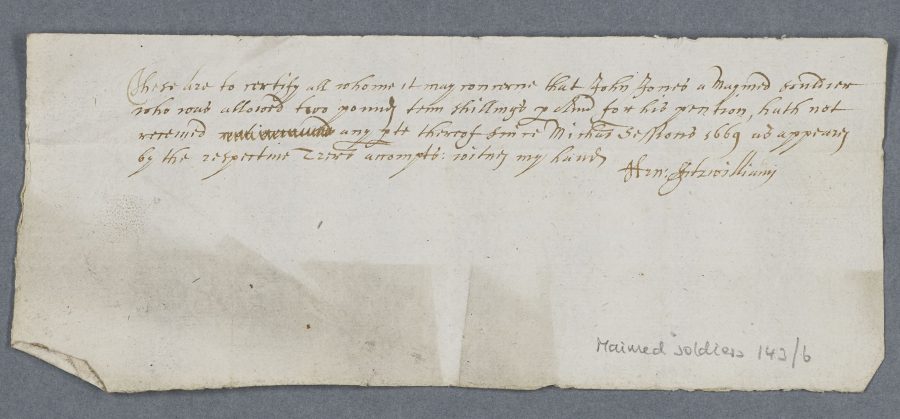 These are to certify all whome it may concerne that John Jones a Maymed Souldier
who was allowed two pounds tenn shillings p Ann for his pention, hath not
receaued any pte thereof since Michas Sessions 1669 as appeares
by the respectiue Trers accompts: witnes my hand
Fitzwilliams
Maimed soldiers 143/6